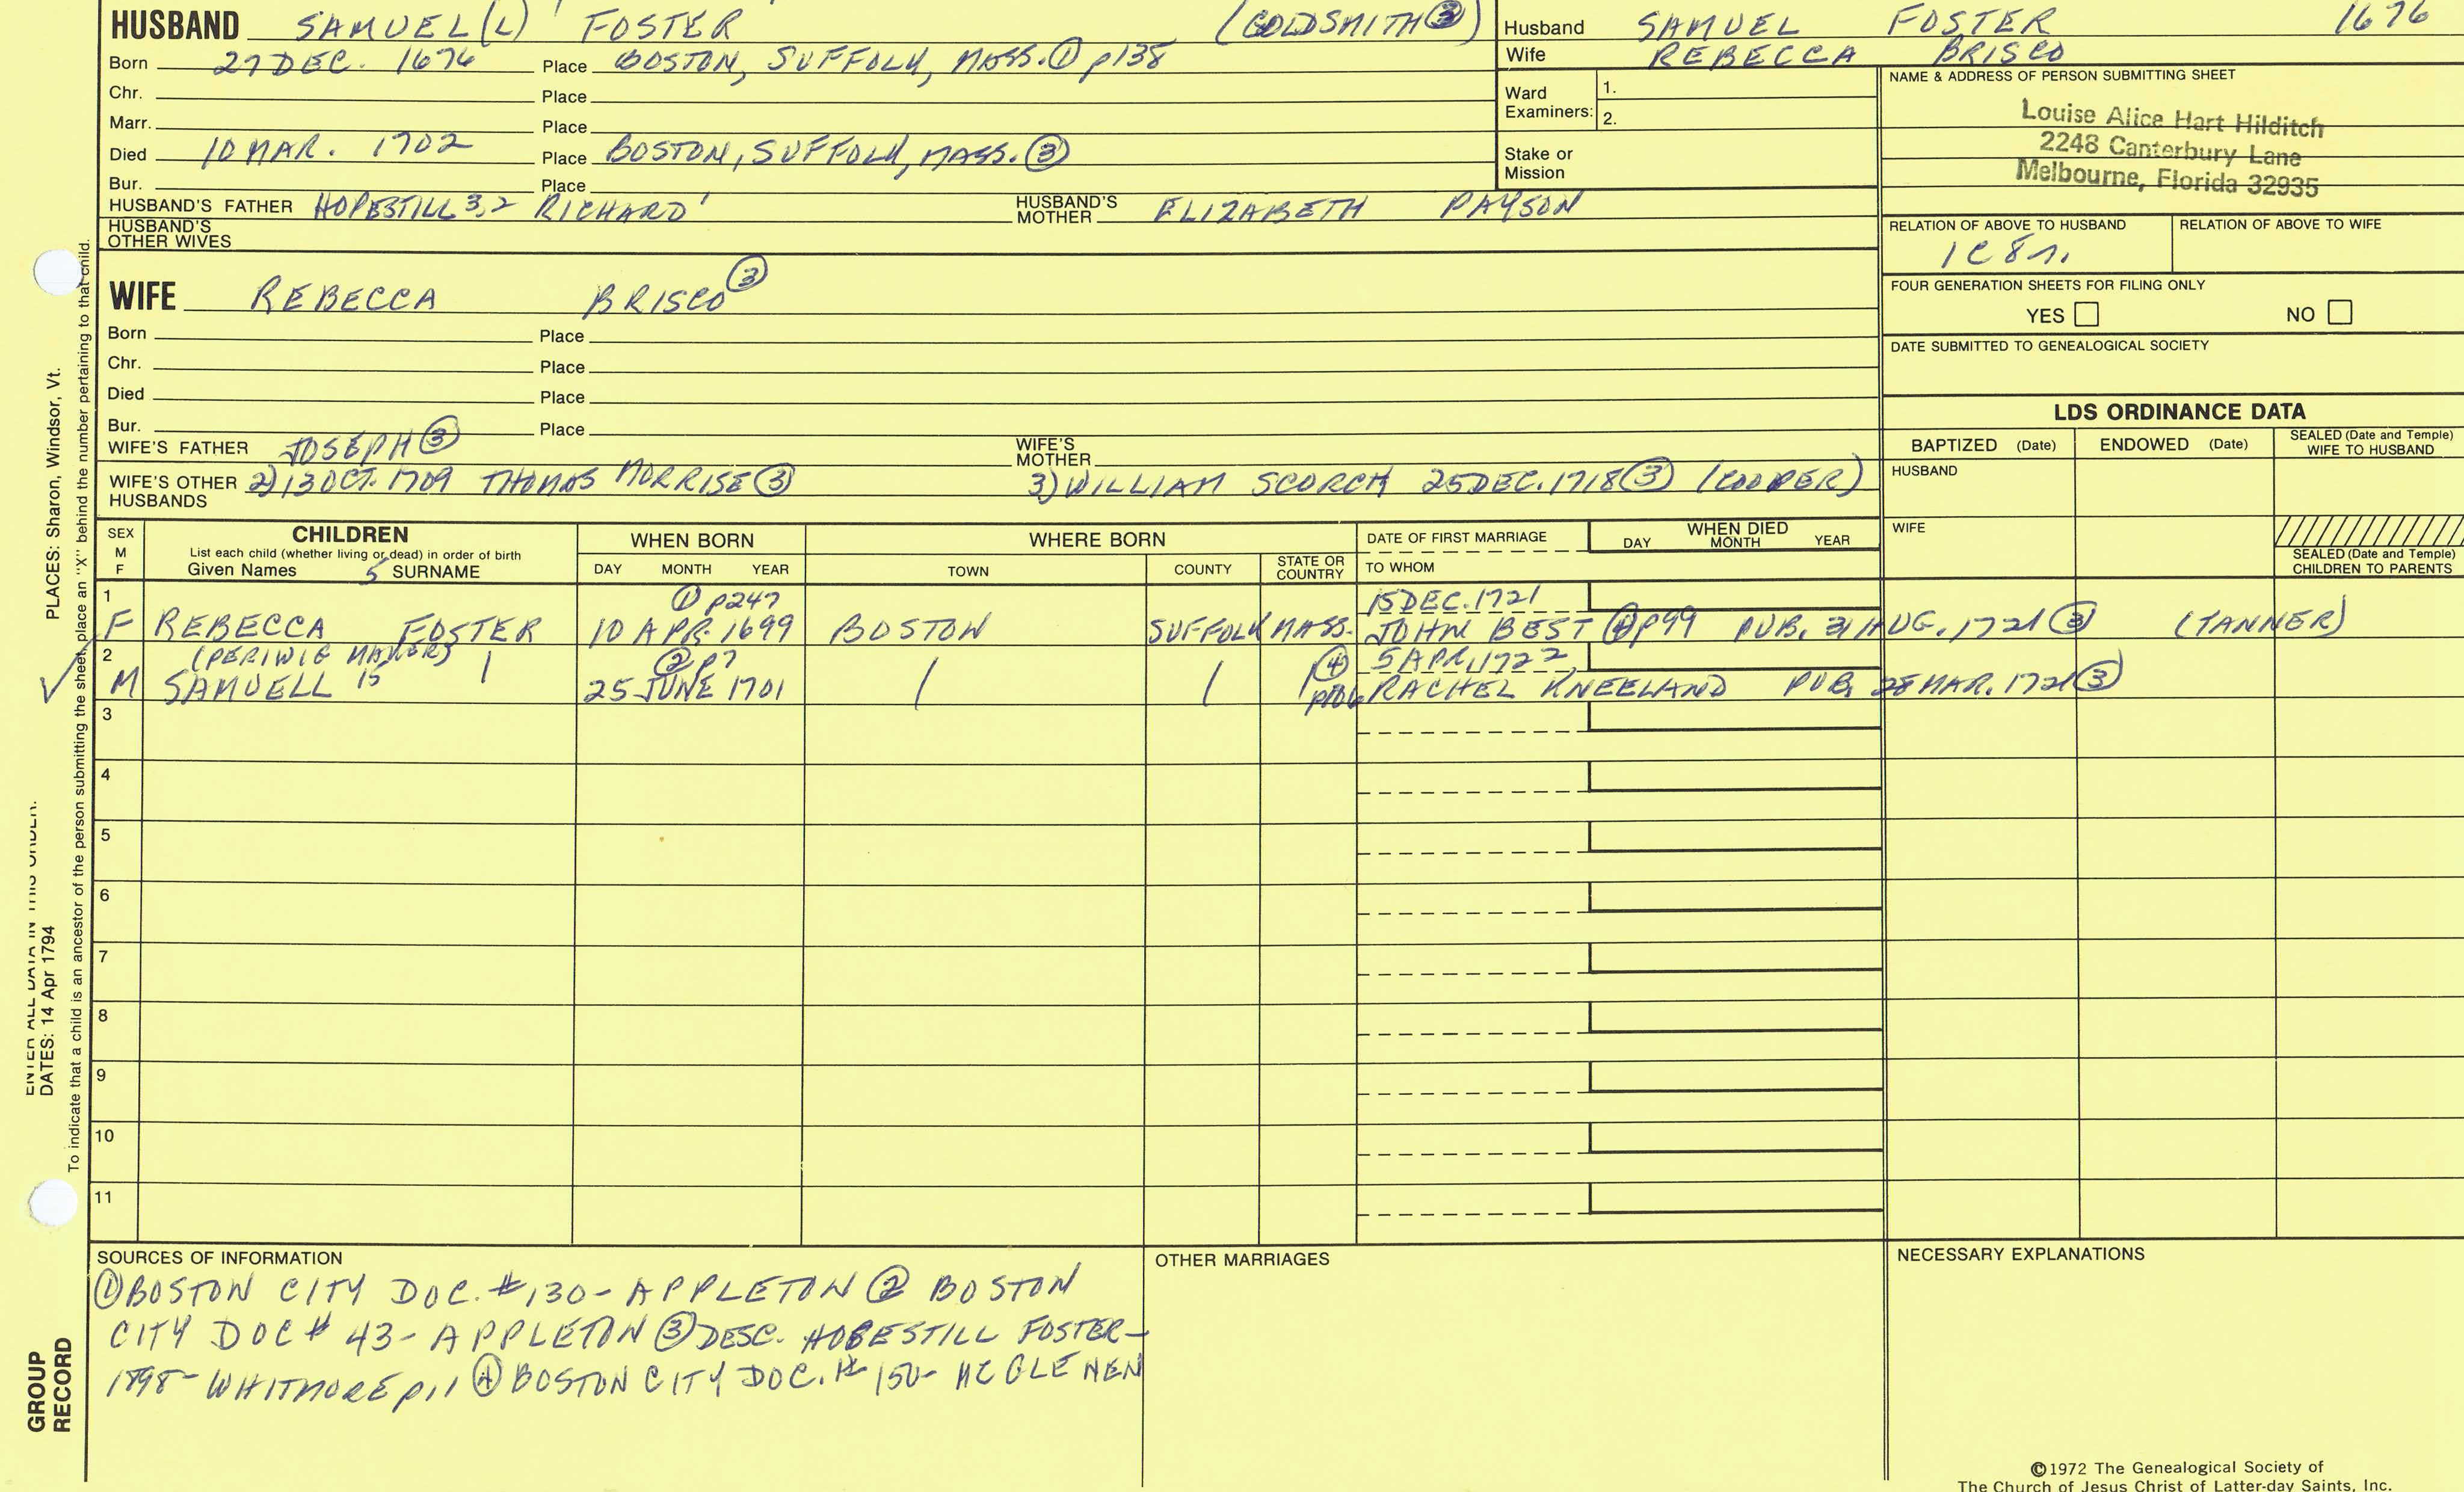 HUSBAND SAMUEL(L) FOSTER (GOLDSMITH ③)
Born 27 DEC. 1676 Place BOSTON, SUFFOLK, MASS. ① p138
Chr. Place
Marr. Place
Died 10 MAR. 1702 Place BOSTON, SUFFOLK, MASS. ③
Bur. Place
HUSBAND'S FATHER HOPESTILL 3,2 RICHARD' HUSBAND'S MOTHER ELIZABETH PAYSON
HUSBAND'S OTHER WIVES
Husband SAMUEL FOSTER 1676
Wife REBECCA BRISCO
Ward Examiners: 1.
2.
Stake or Mission
NAME & ADDRESS OF PERSON SUBMITTING SHEET
Louise Alice Hart Hilditch
2248 Canterbury Lane
Melbourne, Florida 32935
RELATION OF ABOVE TO HUSBAND RELATION OF ABOVE TO WIFE
1C8r.
FOUR GENERATION SHEETS FOR FILING ONLY
YES NO
DATE SUBMITTED TO GENEALOGICAL SOCIETY
WIFE REBECCA BRISCO ③
Born Place
Chr. Place
Died Place
Bur. Place
WIFE'S FATHER JOSEPH ③ WIFE'S MOTHER
WIFE'S OTHER HUSBANDS 2) 13 OCT. 1709 THOMAS MORRISE ③ 3) WILLIAM SCORCH 25 DEC. 1718 ③ (COOPER)
LDS ORDINANCE DATA
BAPTIZED (Date) ENDOWED (Date) SEALED (Date and Temple) WIFE TO HUSBAND
HUSBAND
WIFE
SEALED (Date and Temple) CHILDREN TO PARENTS
SEX M F CHILDREN WHEN BORN WHERE BORN DATE OF FIRST MARRIAGE WHEN DIED
List each child (whether living or dead) in order of birth
Given Names 5 SURNAME DAY MONTH YEAR TOWN COUNTY STATE OR COUNTRY TO WHOM DAY MONTH YEAR
1 ① p247 15 DEC. 1721
F REBECCA FOSTER 10 APR. 1699 BOSTON SUFFOLK MASS. JOHN BEST ④ p99 PUB. 31 AUG. 1721 ③ (TANNER)
2 (PERIWIG MAKER) ② p7 ④ 5 APR. 1722
M SAMUELL 15 25 JUNE 1701 p106 RACHEL KNEELAND PUB. 28 MAR. 1721 ③
3
4
5
6
7
8
9
10
11
SOURCES OF INFORMATION
① BOSTON CITY DOC. #130 - APPLETON ② BOSTON
CITY DOC # 43 - APPLETON ③ DESC. HOPESTILL FOSTER -
1898 - WHITMORE p11 ④ BOSTON CITY DOC. # 150 - MC GLENEN
OTHER MARRIAGES
NECESSARY EXPLANATIONS
©1972 The Genealogical Society of
The Church of Jesus Christ of Latter-day Saints, Inc.
ENTER ALL DATA IN THIS ORDER.
DATES: 14 Apr 1794 PLACES: Sharon, Windsor, Vt.
To indicate that a child is an ancestor of the person submitting the sheet, place an "X" behind the number pertaining to that child.
GROUP
RECORD